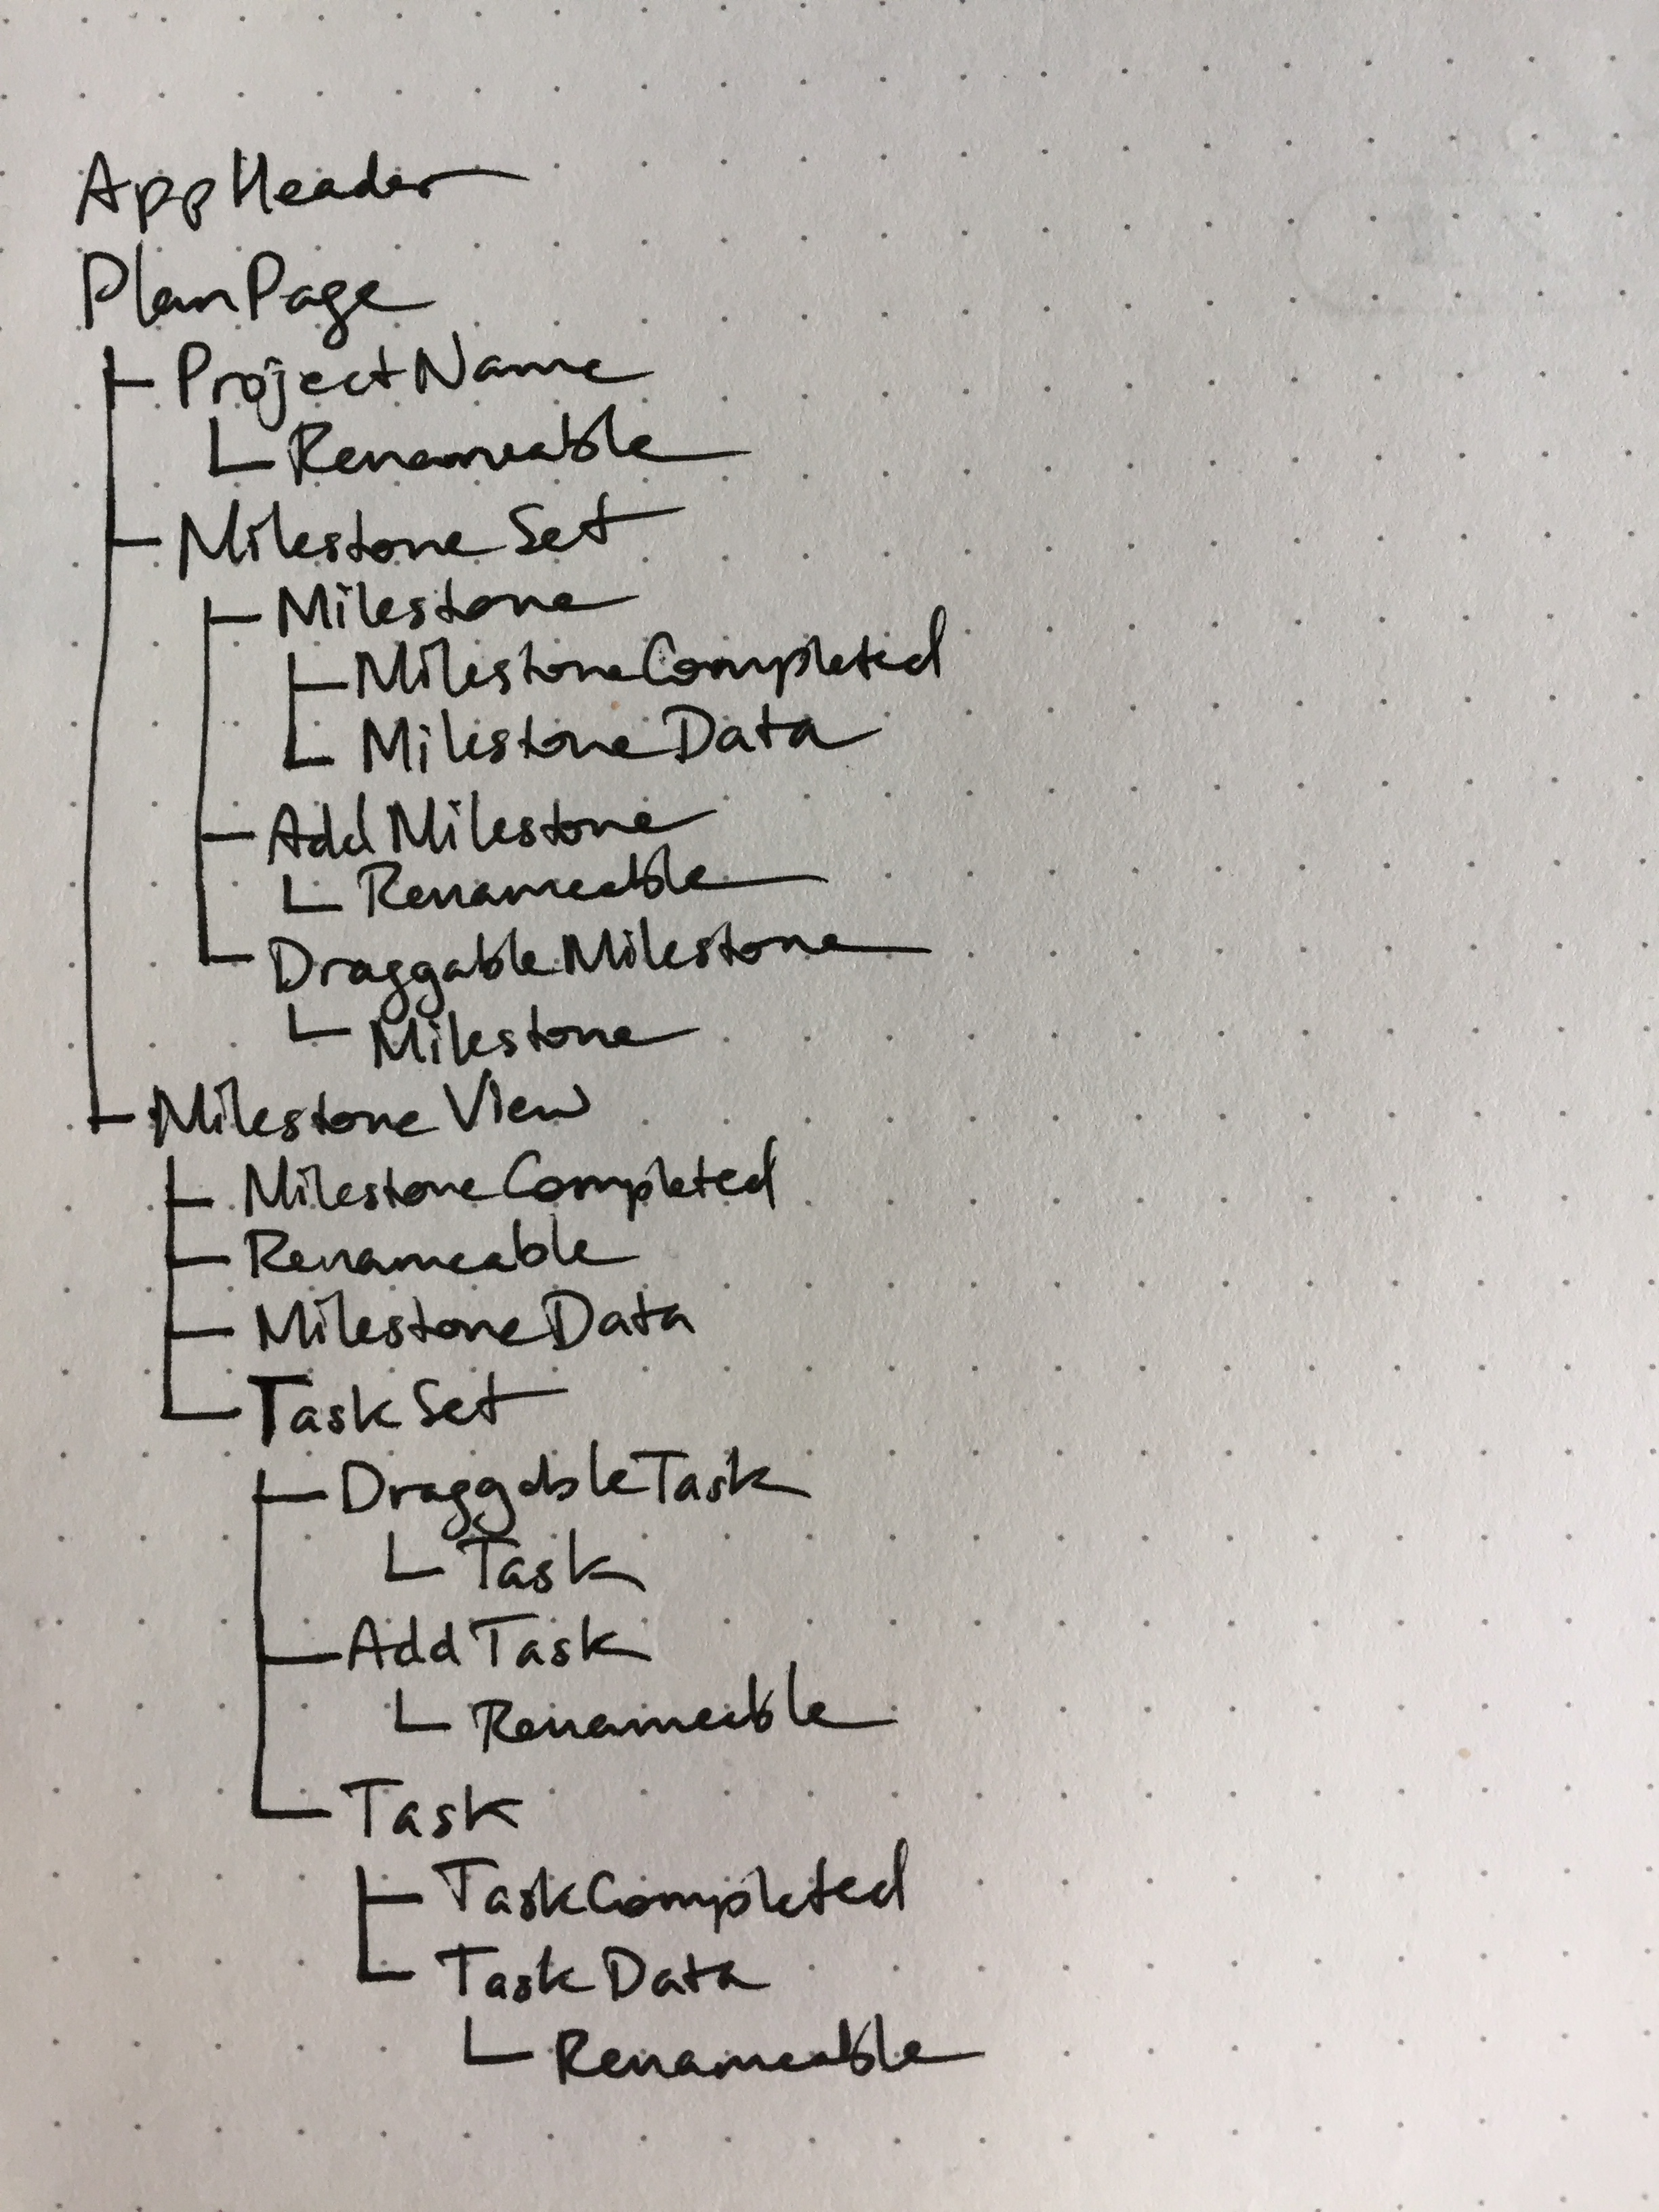 AppHeader
PlanPage
ProjectName
Renameable
MilestoneSet
Milestone
MilestoneCompleted
MilestoneData
AddMilestone
Renameable
DraggableMilestone
Milestone
MilestoneView
MilestoneCompleted
Renameable
MilestoneData
TaskSet
DraggableTask
Task
AddTask
Renameable
Task
TaskCompleted
TaskData
Renameable